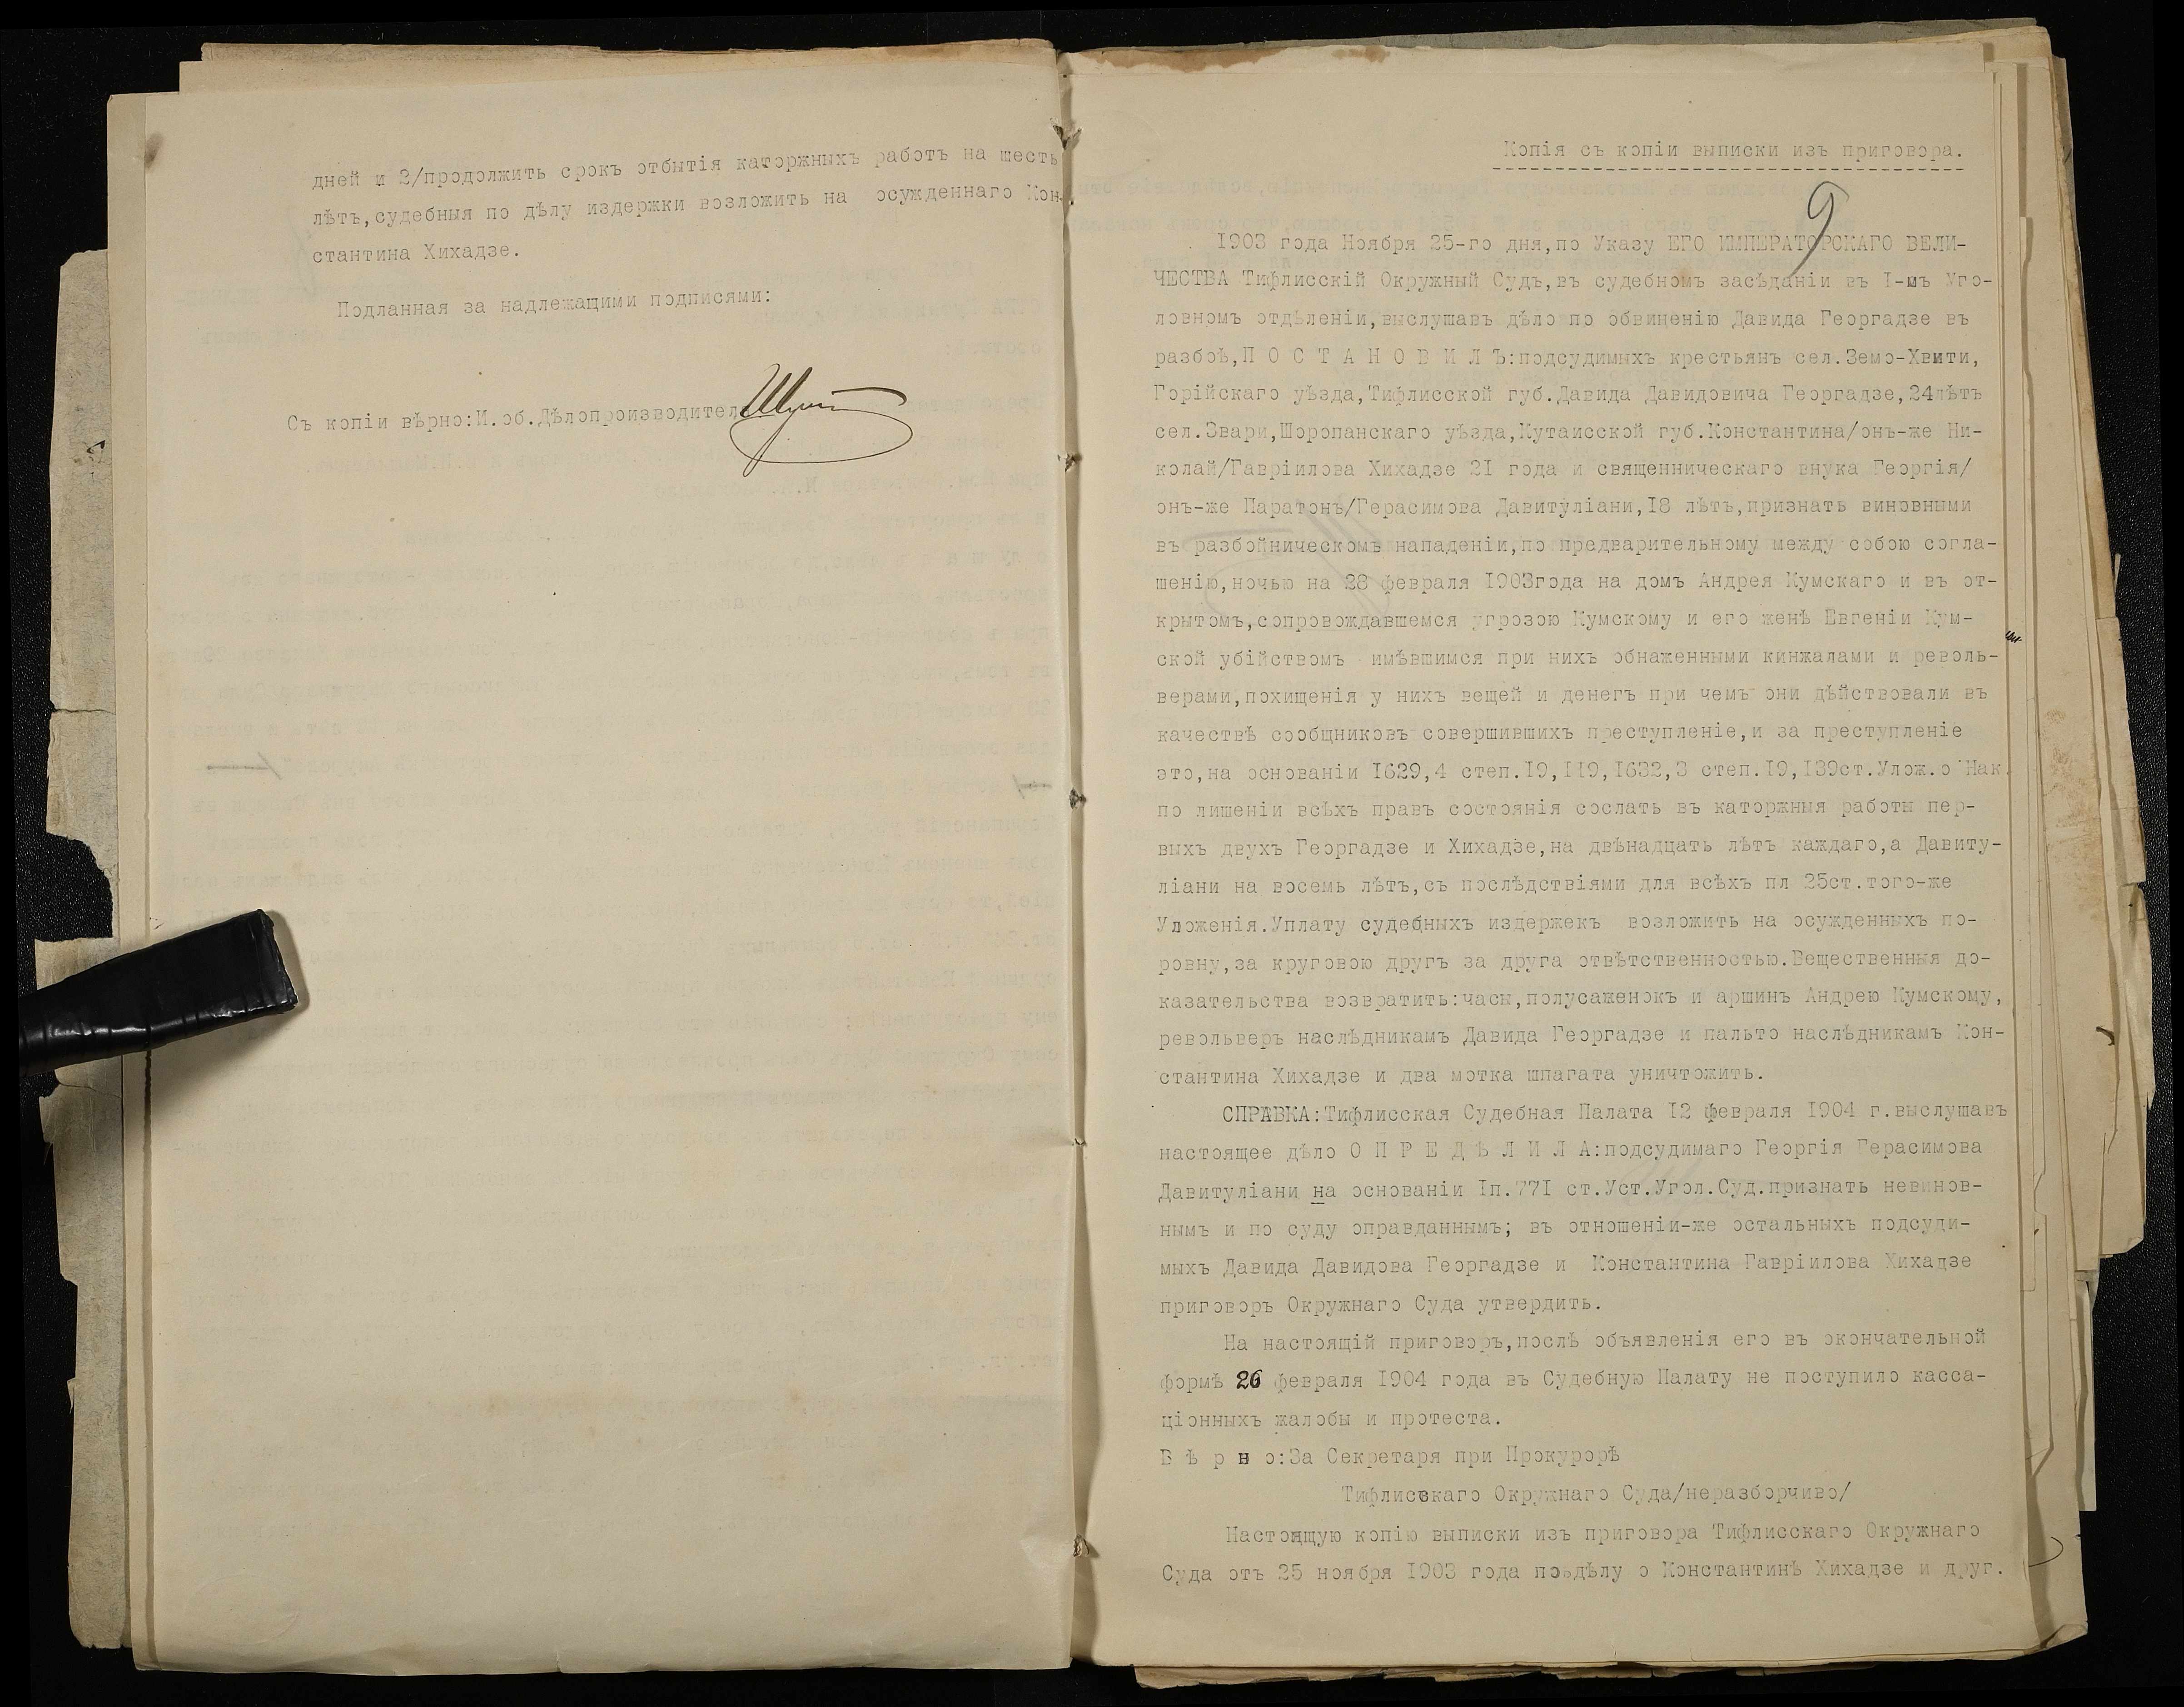 дней и 2/продолжить срокъ отбытія каторжныхъ работъ на шесть
лѣтъ,судебныя по дѣлу издержки возложить на осужденнаго Кон-
стантина Хихадзе.
Подланная за надлежащими подписями:
Съ копіи вѣрно:И.об.Дѣлопроизводител
Копія съ копіи выписки изъ приговора.
9
1903 года Ноября 25-го дня,по Указу ЕГО ИМПЕРАТОРСКАГО ВЕЛИ-
ЧЕСТВА Тифлисскій Окружный Судъ,въ судебномъ засѣданіи въ I-мъ Уго-
ловномъ отдѣленіи,выслушавъ дѣло по обвиненію Давида Георгадзе въ
разбоѣ,П О С Т А Н О В И Л Ъ:подсудимыхъ крестьянъ сел.Земо-Хвити,
Горійскаго уѣзда,Тифлисской губ.Давида Давидовича Георгадзе,24лѣтъ
сел.Звари,Шоропанскаго уѣзда,Кутаисской губ.Константина/онъ-же Ни-
колай/Гавріилова Хихадзе 2I года и священническаго внука Георгія/
онъ-же Паратонъ/Герасимова Давитуліани,I8 лѣтъ,признать виновными
въ разбойническомъ нападеніи,по предварительному между собою согла-
шенію,ночью на 28 февраля I903года на домъ Андрея Кумскаго и въ от-
крытомъ,сопровождавшемся угрозою Кумскому и его женѣ Евгеніи Кум-
ской убійствомъ имѣвшимся при нихъ обнаженными кинжалами и револь-
верами,похищенія у нихъ вещей и денегъ при чемъ они дѣйствовали въ
качествѣ сообщниковъ совершившихъ преступленіе,и за преступленіе
это,на основаніи I629,4 степ.I9,II9,I632,3 степ.I9,I39ст.Улож.о Нак.
по лишеніи всѣхъ правъ состоянія сослать въ каторжныя работы пер-
выхъ двухъ Георгадзе и Хихадзе,на двѣнадцать лѣтъ каждаго,а Давиту-
ліани на восемь лѣтъ,съ послѣдствіями для всѣхъ пл 25ст.того-же
Уложенія.Уплату судебныхъ издержекъ возложить на осужденныхъ по-
ровну,за круговою другъ за друга отвѣтственностью.Вещественныя до-
казательства возвратить:часы,полусаженокъ и аршинъ Андрею Кумскому,
револьверъ наслѣдникамъ Давида Георгадзе и пальто наслѣдникамъ Кон-
стантина Хихадзе и два мотка шпагата уничтожить.
СПРАВКА:Тифлисская Судебная Палата I2 февраля I904 г.выслушавъ
настоящее дѣло О П Р Е Д Ѣ Л И Л А:подсудимаго Георгія Герасимова
Давитуліани на основаніи Iп.77I ст.Уст.Угол.Суд.признать невинов-
нымъ и по суду оправданнымъ; въ отношеніи-же остальныхъ подсуди-
мыхъ Давида Давидова Георгадзе и Константина Гавріилова Хихадзе
приговоръ Окружнаго Суда утвердить.
На настоящій приговоръ,послѣ объявленія его въ окончательной
формѣ 26 февраля I904 года въ Судебную Палату не поступило касса-
ціонныхъ жалобы и протеста.
В ѣ р н о:За Секретаря при Прокурорѣ
Тифлисскаго Окружнаго Суда/неразборчиво/
Настоящую копію выписки изъ приговора Тифлисскаго Окружнаго
Суда отъ 25 ноября I903 года по дѣлу о Константинѣ Хихадзе и друг.